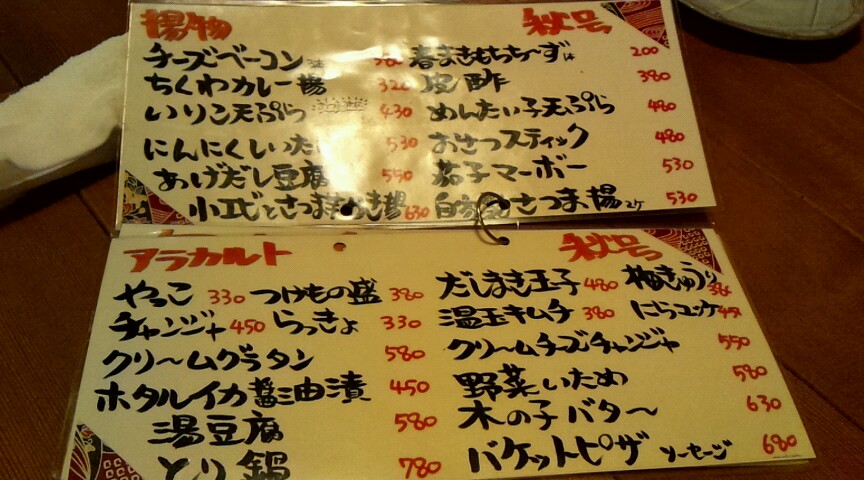 揚物 秋号
チーズベーコン 春まきもちちーず 200
ちくわカレー揚 320 皮酢 380
いりこ天ぷら 430 めんたい子天ぷら 480
にんにくしいた 530 おさつスティック 480
あげだし豆腐 550 茄子マーボー 530
小エビとさつま 揚 630 自家 さつま揚 530
アラカルト 秋号
やっこ 330 つけもの盛 380 だしまき玉子 480 梅きゅうり
チャンジャ 450 らっきょ 330 温玉キムチ 380 にらユッケ
クリームグラタン 580 クリームチーズチャンジャ 550
ホタルイカ醤油漬 450 野菜いため 580
湯豆腐 580 木の子バター 630
とり鍋 780 バケットピザ ソーセージ 680